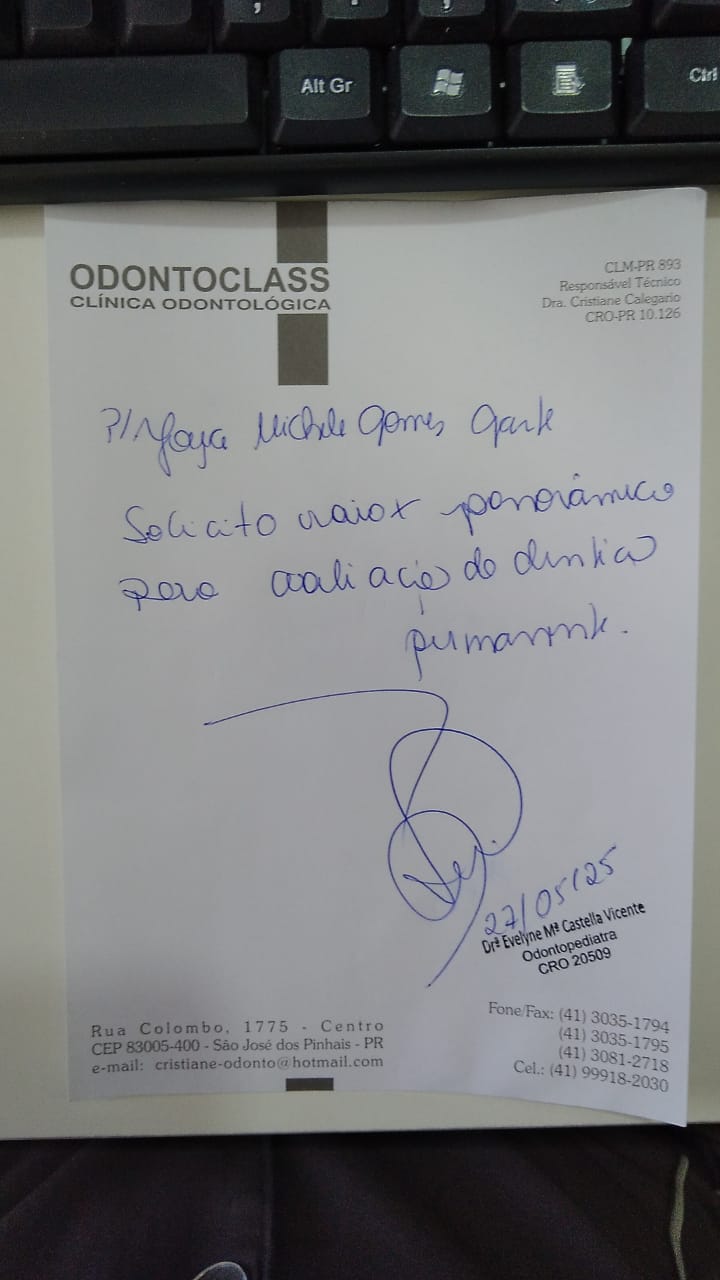 Alt Gr
Ctrl
ODONTOCLASS
CLÍNICA ODONTOLÓGICA
CLM-PR 893
Responsável Técnico
Dra. Cristiane Calegario
CRO-PR 10.126
P/ Michele Gomes
Solicito raio x panorâmico
para avaliação da dentição
permanente.
27/05/25
Drª Evelyne Mª Castella Vicente
Odontopediatra
CRO 20509
Rua Colombo, 1775 - Centro
CEP 83005-400 - São José dos Pinhais - PR
e-mail: cristiane-odonto@hotmail.com
Fone/Fax: (41) 3035-1794
(41) 3035-1795
(41) 3081-2718
Cel.: (41) 99918-2030